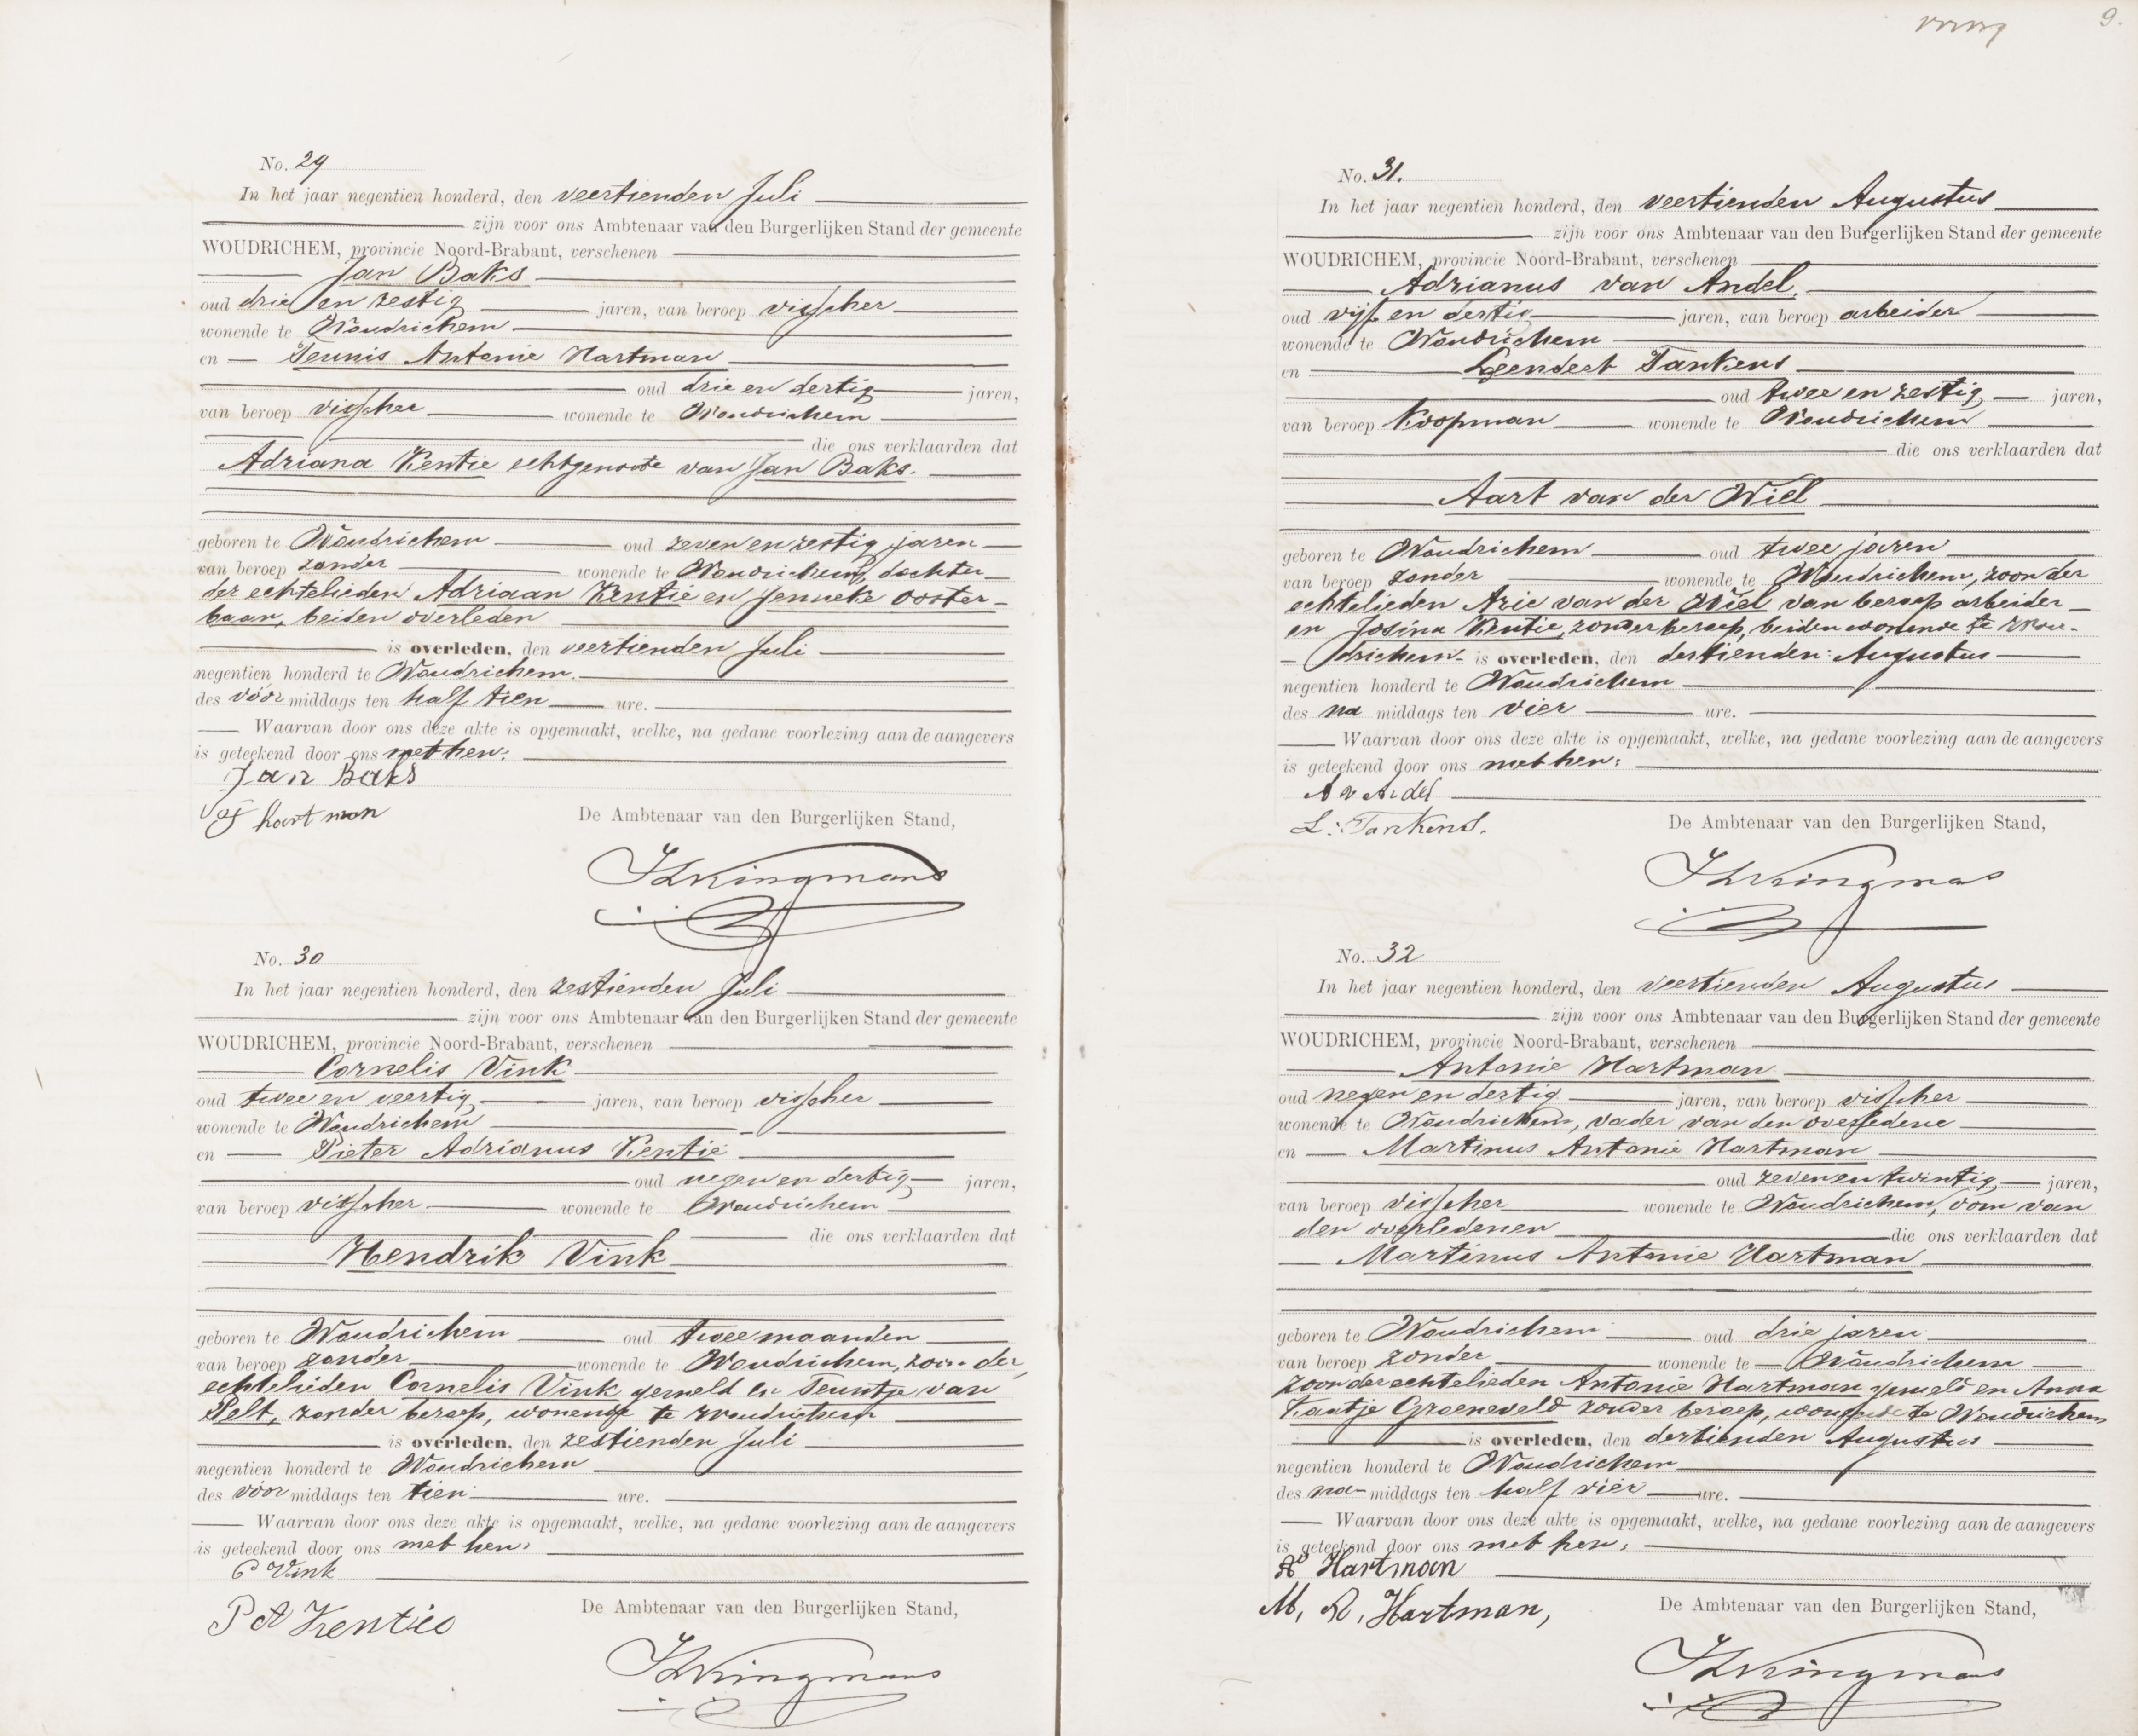 No. 29
In het jaar negentien honderd, den veertienden Juli
zijn voor ons Ambtenaar van den Burgerlijken Stand der gemeente
WOUDRICHEM, provincie Noord-Brabant, verschenen
Jan Baks
oud drie en zestig jaren, van beroep visscher
wonende te Woudrichem
en Teunis Antonie Hartman
oud drie en dertig jaren,
van beroep visscher wonende te Woudrichem
die ons verklaarden dat
Adriana Kentie echtgenoote van Jan Baks.
geboren te Woudrichem oud zeven en zestig jaren
van beroep zonder wonende te Woudrichem, dochter
der echtelieden Adriaan Kentie en Jenneke Ooster-
baan, beiden overleden
is overleden, den veertienden Juli
negentien honderd te Woudrichem.
des vóór middags ten half tien ure.
Waarvan door ons deze akte is opgemaakt, welke, na gedane voorlezing aan de aangevers
is geteekend door ons met hen:
Jan Baks
hartman
De Ambtenaar van den Burgerlijken Stand,
No. 30
In het jaar negentien honderd, den zestienden Juli
zijn voor ons Ambtenaar van den Burgerlijken Stand der gemeente
WOUDRICHEM, provincie Noord-Brabant, verschenen
Cornelis Vink
oud twee en veertig jaren, van beroep visscher
wonende te Woudrichem
en Pieter Adrianus Kentie
oud negen en dertig jaren,
van beroep visscher wonende te Woudrichem
die ons verklaarden dat
Hendrik Vink
geboren te Woudrichem oud twee maanden
van beroep zonder wonende te Woudrichem, zoon der
echtelieden Cornelis Vink gemeld en Teuntje van
Pelt, zonder beroep, wonende te Woudrichem
is overleden, den zestienden Juli
negentien honderd te Woudrichem
des vóór middags ten tien ure.
Waarvan door ons deze akte is opgemaakt, welke, na gedane voorlezing aan de aangevers
is geteekend door ons met hen:
C Vink
P A Kentie
De Ambtenaar van den Burgerlijken Stand,
9.
No. 31.
In het jaar negentien honderd, den veertienden Augustus
zijn voor ons Ambtenaar van den Burgerlijken Stand der gemeente
WOUDRICHEM, provincie Noord-Brabant, verschenen
Adrianus van Andel,
oud vijf en dertig jaren, van beroep arbeider
wonende te Woudrichem
en Leendert Tankens
oud twee en zestig jaren,
van beroep koopman wonende te Woudrichem
die ons verklaarden dat
Aart van der Wiel
geboren te Woudrichem oud twee jaren
van beroep zonder wonende te Woudrichem, zoon der
echtelieden Arie van der Wiel van beroep arbeider
en Josina Kentie, zonder beroep, beiden wonende te Wou-
drichem is overleden, den dertienden Augustus
negentien honderd te Woudrichem
des na middags ten vier ure.
Waarvan door ons deze akte is opgemaakt, welke, na gedane voorlezing aan de aangevers
is geteekend door ons met hen:
A v Andel
L. Tankens.
De Ambtenaar van den Burgerlijken Stand,
No. 32
In het jaar negentien honderd, den veertienden Augustus
zijn voor ons Ambtenaar van den Burgerlijken Stand der gemeente
WOUDRICHEM, provincie Noord-Brabant, verschenen
Antonie Hartman
oud negen en dertig jaren, van beroep visscher
wonende te Woudrichem, vader van den overledene
en Martinus Antonie Hartman
oud zeven en twintig jaren,
van beroep visscher wonende te Woudrichem, oom van
den overledenen die ons verklaarden dat
Martinus Antonie Hartman
geboren te Woudrichem oud drie jaren
van beroep zonder wonende te Woudrichem
zoon der echtelieden Antonie Hartman gemeld en Anna
Kaatje Groeneveld zonder beroep, wonende te Woudrichem
is overleden, den dertienden Augustus
negentien honderd te Woudrichem
des na middags ten half vier ure.
Waarvan door ons deze akte is opgemaakt, welke, na gedane voorlezing aan de aangevers
is geteekend door ons met hen:
Hartman
M. A. Hartman,
De Ambtenaar van den Burgerlijken Stand,